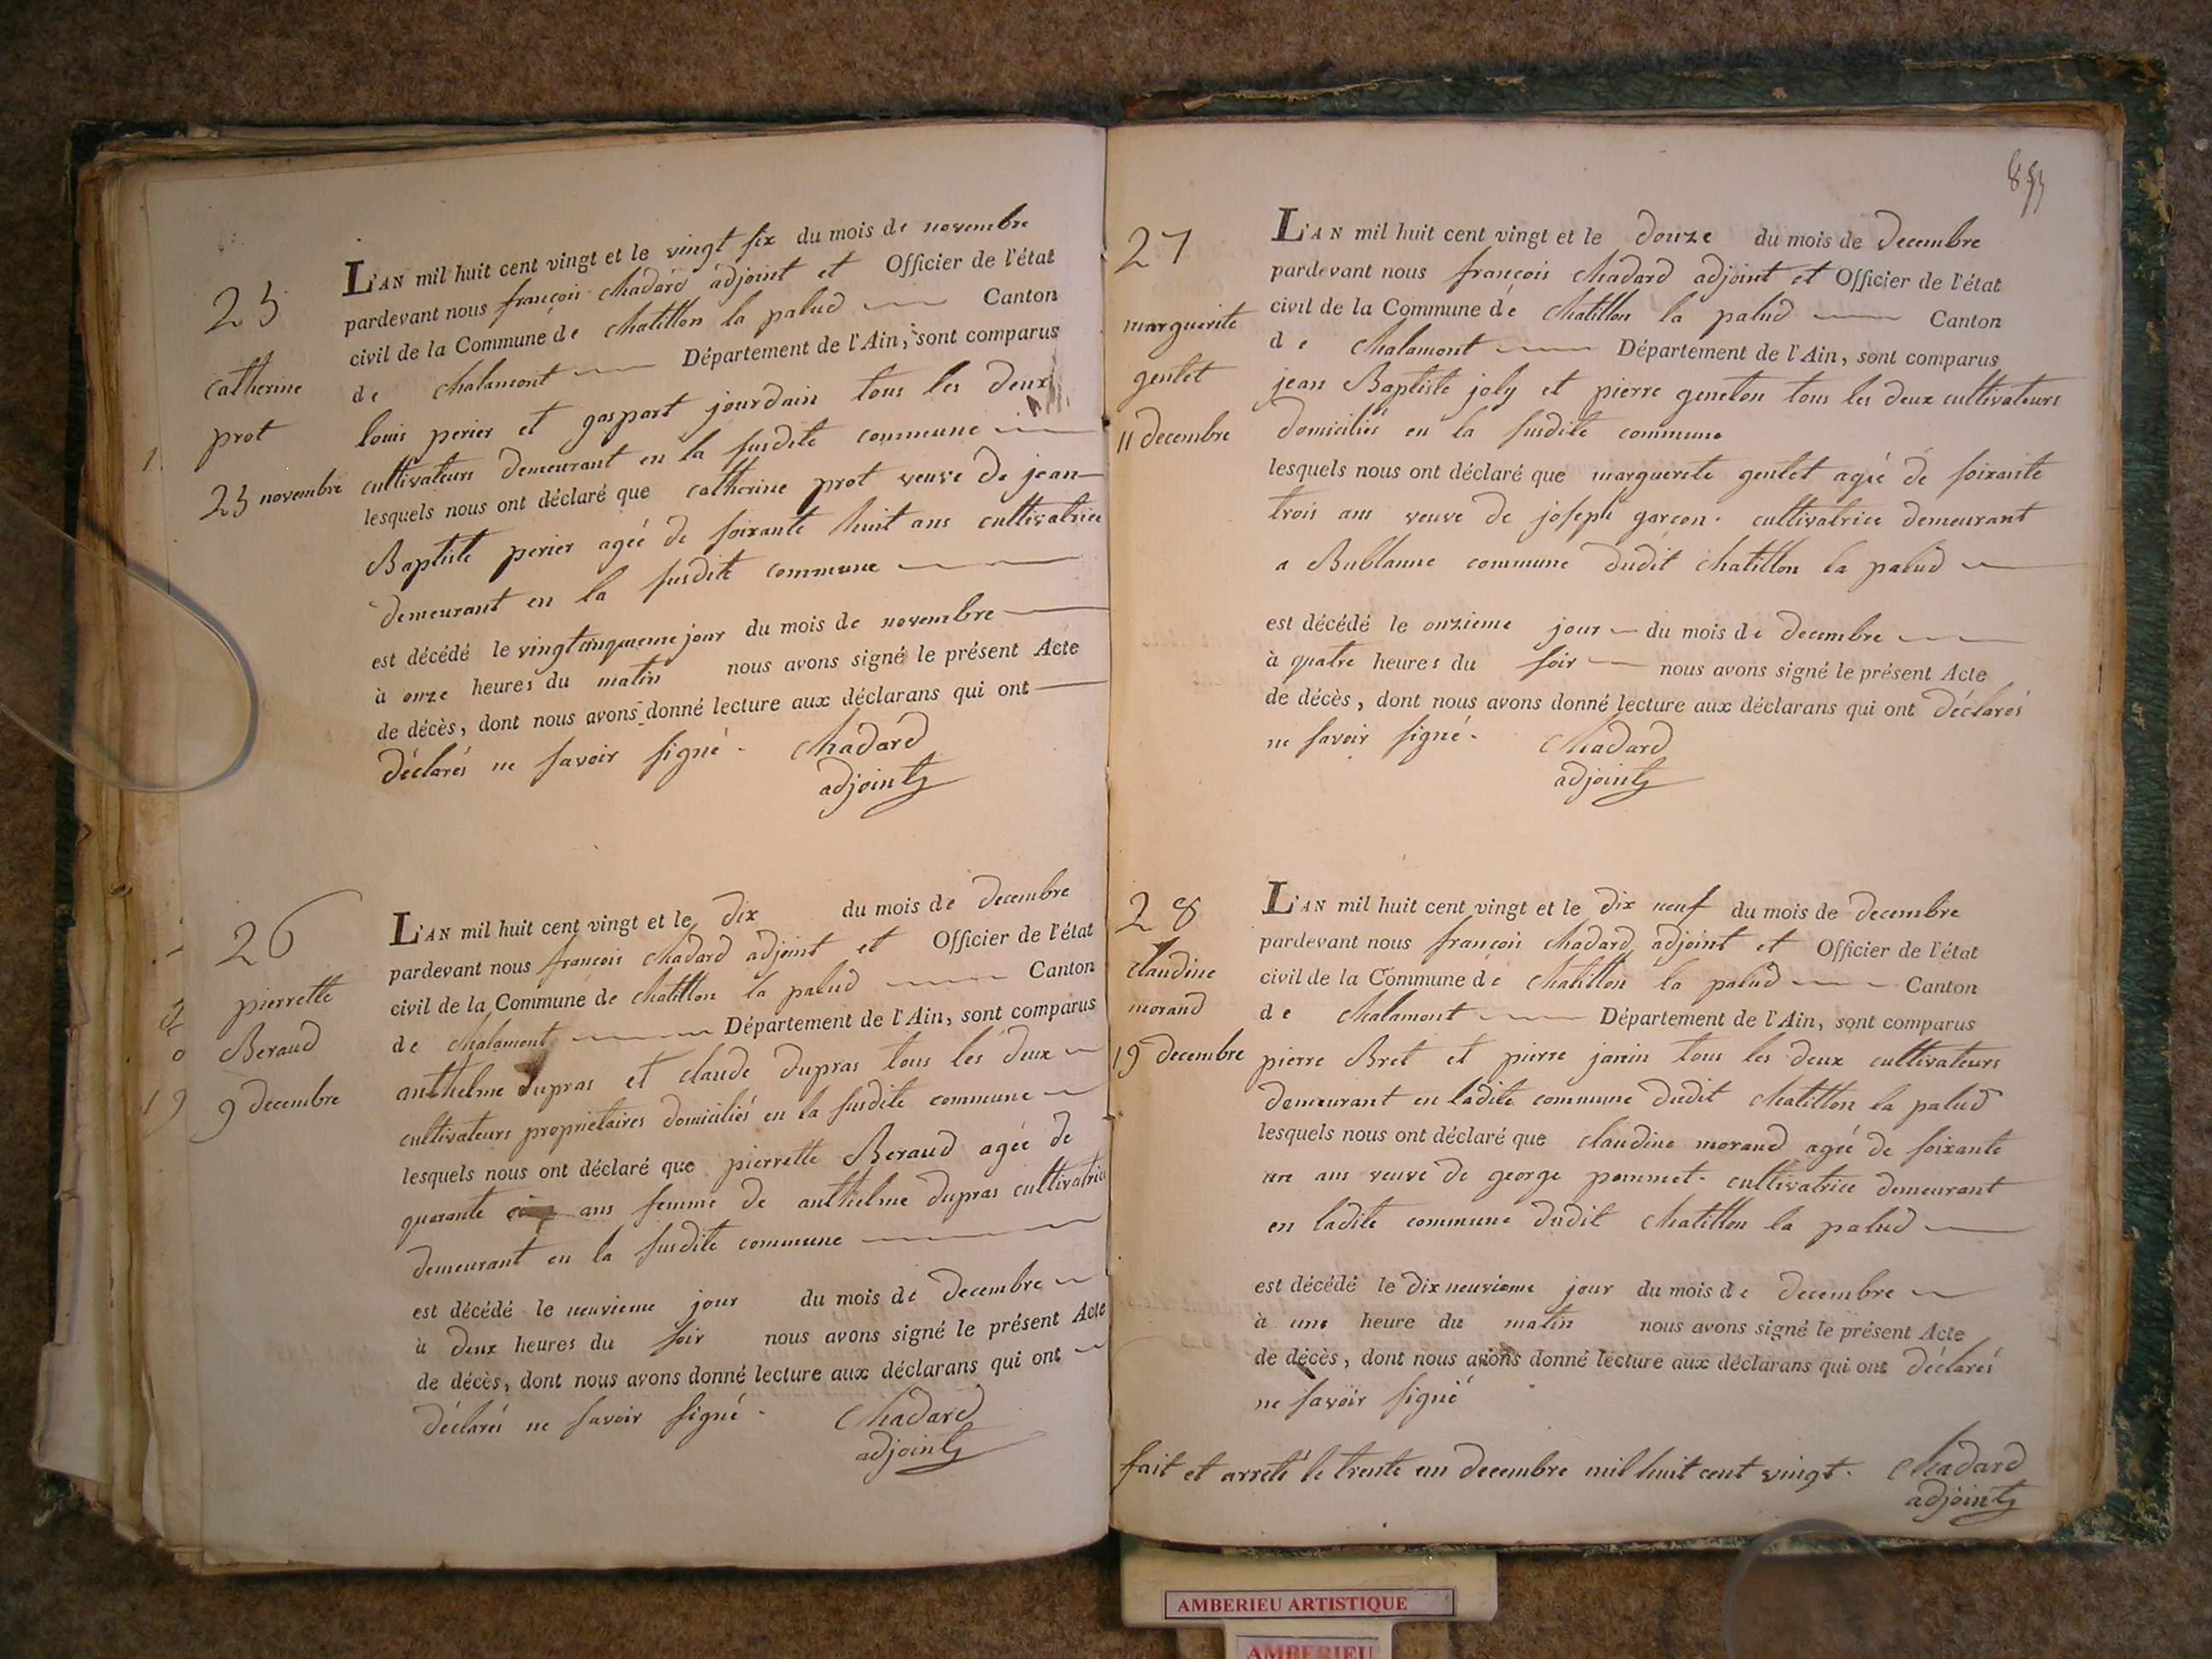 25
catherine
prot
25 novembre
L'AN mil huit cent vingt et le vingt six du mois de novembre
pardevant nous françois chadard adjoint et Officier de l'état
civil de la Commune de chatillon la palud Canton
de chalamont Département de l'Ain, sont comparus
louis perier et gaspart jourdain tous les deux
cultivateurs demeurant en la susdite commune
lesquels nous ont déclaré que catherine prot veuve de jean
Baptiste perier agée de soixante huit ans cultivatrice
demeurant en la susdite commune
est décédé le vingtcinquieme jour du mois de novembre
à onze heures du matin nous avons signé le présent Acte
de décès, dont nous avons donné lecture aux déclarans qui ont
déclarés ne savoir signé. Chadard
adjoint
26
pierrette
Beraud
9 decembre
L'AN mil huit cent vingt et le dix du mois de decembre
pardevant nous françois chadard adjoint et Officier de l'état
civil de la Commune de chatillon la palud Canton
de chalamont Département de l'Ain, sont comparus
anthelme dupras et claude dupras tous les deux
cultivateurs proprietaires domiciliés en la susdite commune
lesquels nous ont déclaré que pierrette Beraud agée de
quarante ans femme de anthelme dupras cultivatrice
demeurant en la susdite commune
est décédé le neuvieme jour du mois de decembre
à deux heures du soir nous avons signé le présent Acte
de décès, dont nous avons donné lecture aux déclarans qui ont
déclarés ne savoir signé. Chadard
adjoint
27
marguerite
gentet
11 decembre
L'AN mil huit cent vingt et le douze du mois de decembre
pardevant nous françois chadard adjoint et Officier de l'état
civil de la Commune de chatillon la palud Canton
de chalamont Département de l'Ain, sont comparus
jean Baptiste joly et pierre geneton tous les deux cultivateurs
domiciliés en la susdite commune
lesquels nous ont déclaré que marguerite gentet agée de soixante
trois ans veuve de joseph garçon. cultivatrice demeurant
a Bublanne commune dudit chatillon la palud
est décédé le onzieme jour du mois de decembre
à quatre heures du soir nous avons signé le présent Acte
de décès, dont nous avons donné lecture aux déclarans qui ont déclarés
ne savoir signé. Chadard
adjoint
28
claudine
morand
19 decembre
L'AN mil huit cent vingt et le dix neuf du mois de decembre
pardevant nous françois chadard adjoint et Officier de l'état
civil de la Commune de chatillon la palud Canton
de chalamont Département de l'Ain, sont comparus
pierre Bret et pierre janin tous les deux cultivateurs
demeurant en ladite commune dudit chatillon la palud
lesquels nous ont déclaré que claudine morand agée de soixante
un ans veuve de george pommet. cultivatrice demeurant
en ladite commune dudit chatillon la palud
est décédé le dix neuvieme jour du mois de decembre
à une heure du matin nous avons signé le présent Acte
de décès, dont nous avons donné lecture aux déclarans qui ont déclarés
ne savoir signé
fait et arreté le trente un decembre mil huit cent vingt. Chadard
adjoint
AMBERIEU ARTISTIQUE
AMBERIEU